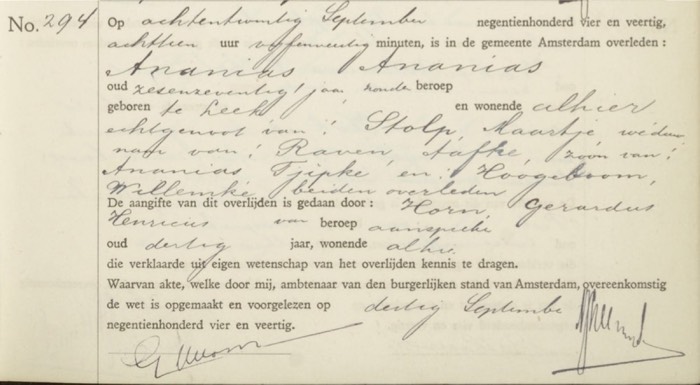 No. 294 Op achtentwintig September negentienhonderd vier en veertig,
achttien uur vijfenveertig minuten, is in de gemeente Amsterdam overleden :
Ananias Ananias
oud zesenzeventig jaar zonder beroep
geboren te Leek en wonende alhier
echtgenoot van: Stolp, Maartje weduw-
naar van: Raven, Aafke, zoon van:
Ananias Tjipke en: Hoogeboom,
Willemke beiden overleden
De aangifte van dit overlijden is gedaan door : Horn, Gerardus
Henricus van beroep aanspreker
oud dertig jaar, wonende alhier
die verklaarde uit eigen wetenschap van het overlijden kennis te dragen.
Waarvan akte, welke door mij, ambtenaar van den burgerlijken stand van Amsterdam, overeenkomstig
de wet is opgemaakt en voorgelezen op dertig September
negentienhonderd vier en veertig.